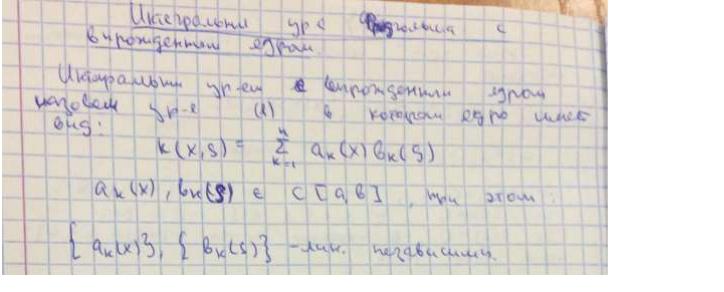 Интегральны ур-е Фредгольма с
вырожденным ядром
Интегральны ур-ем с вырожденным ядром
назовем ур-е (1) в котором ядро имеет
вид:
K(x,s) = \sum_{k=1}^{n} a_k(x) b_k(s)
a_k(x), b_k(s) ∈ C[a,b], при этом:
{a_k(x)}, {b_k(s)} - лин. независимы.